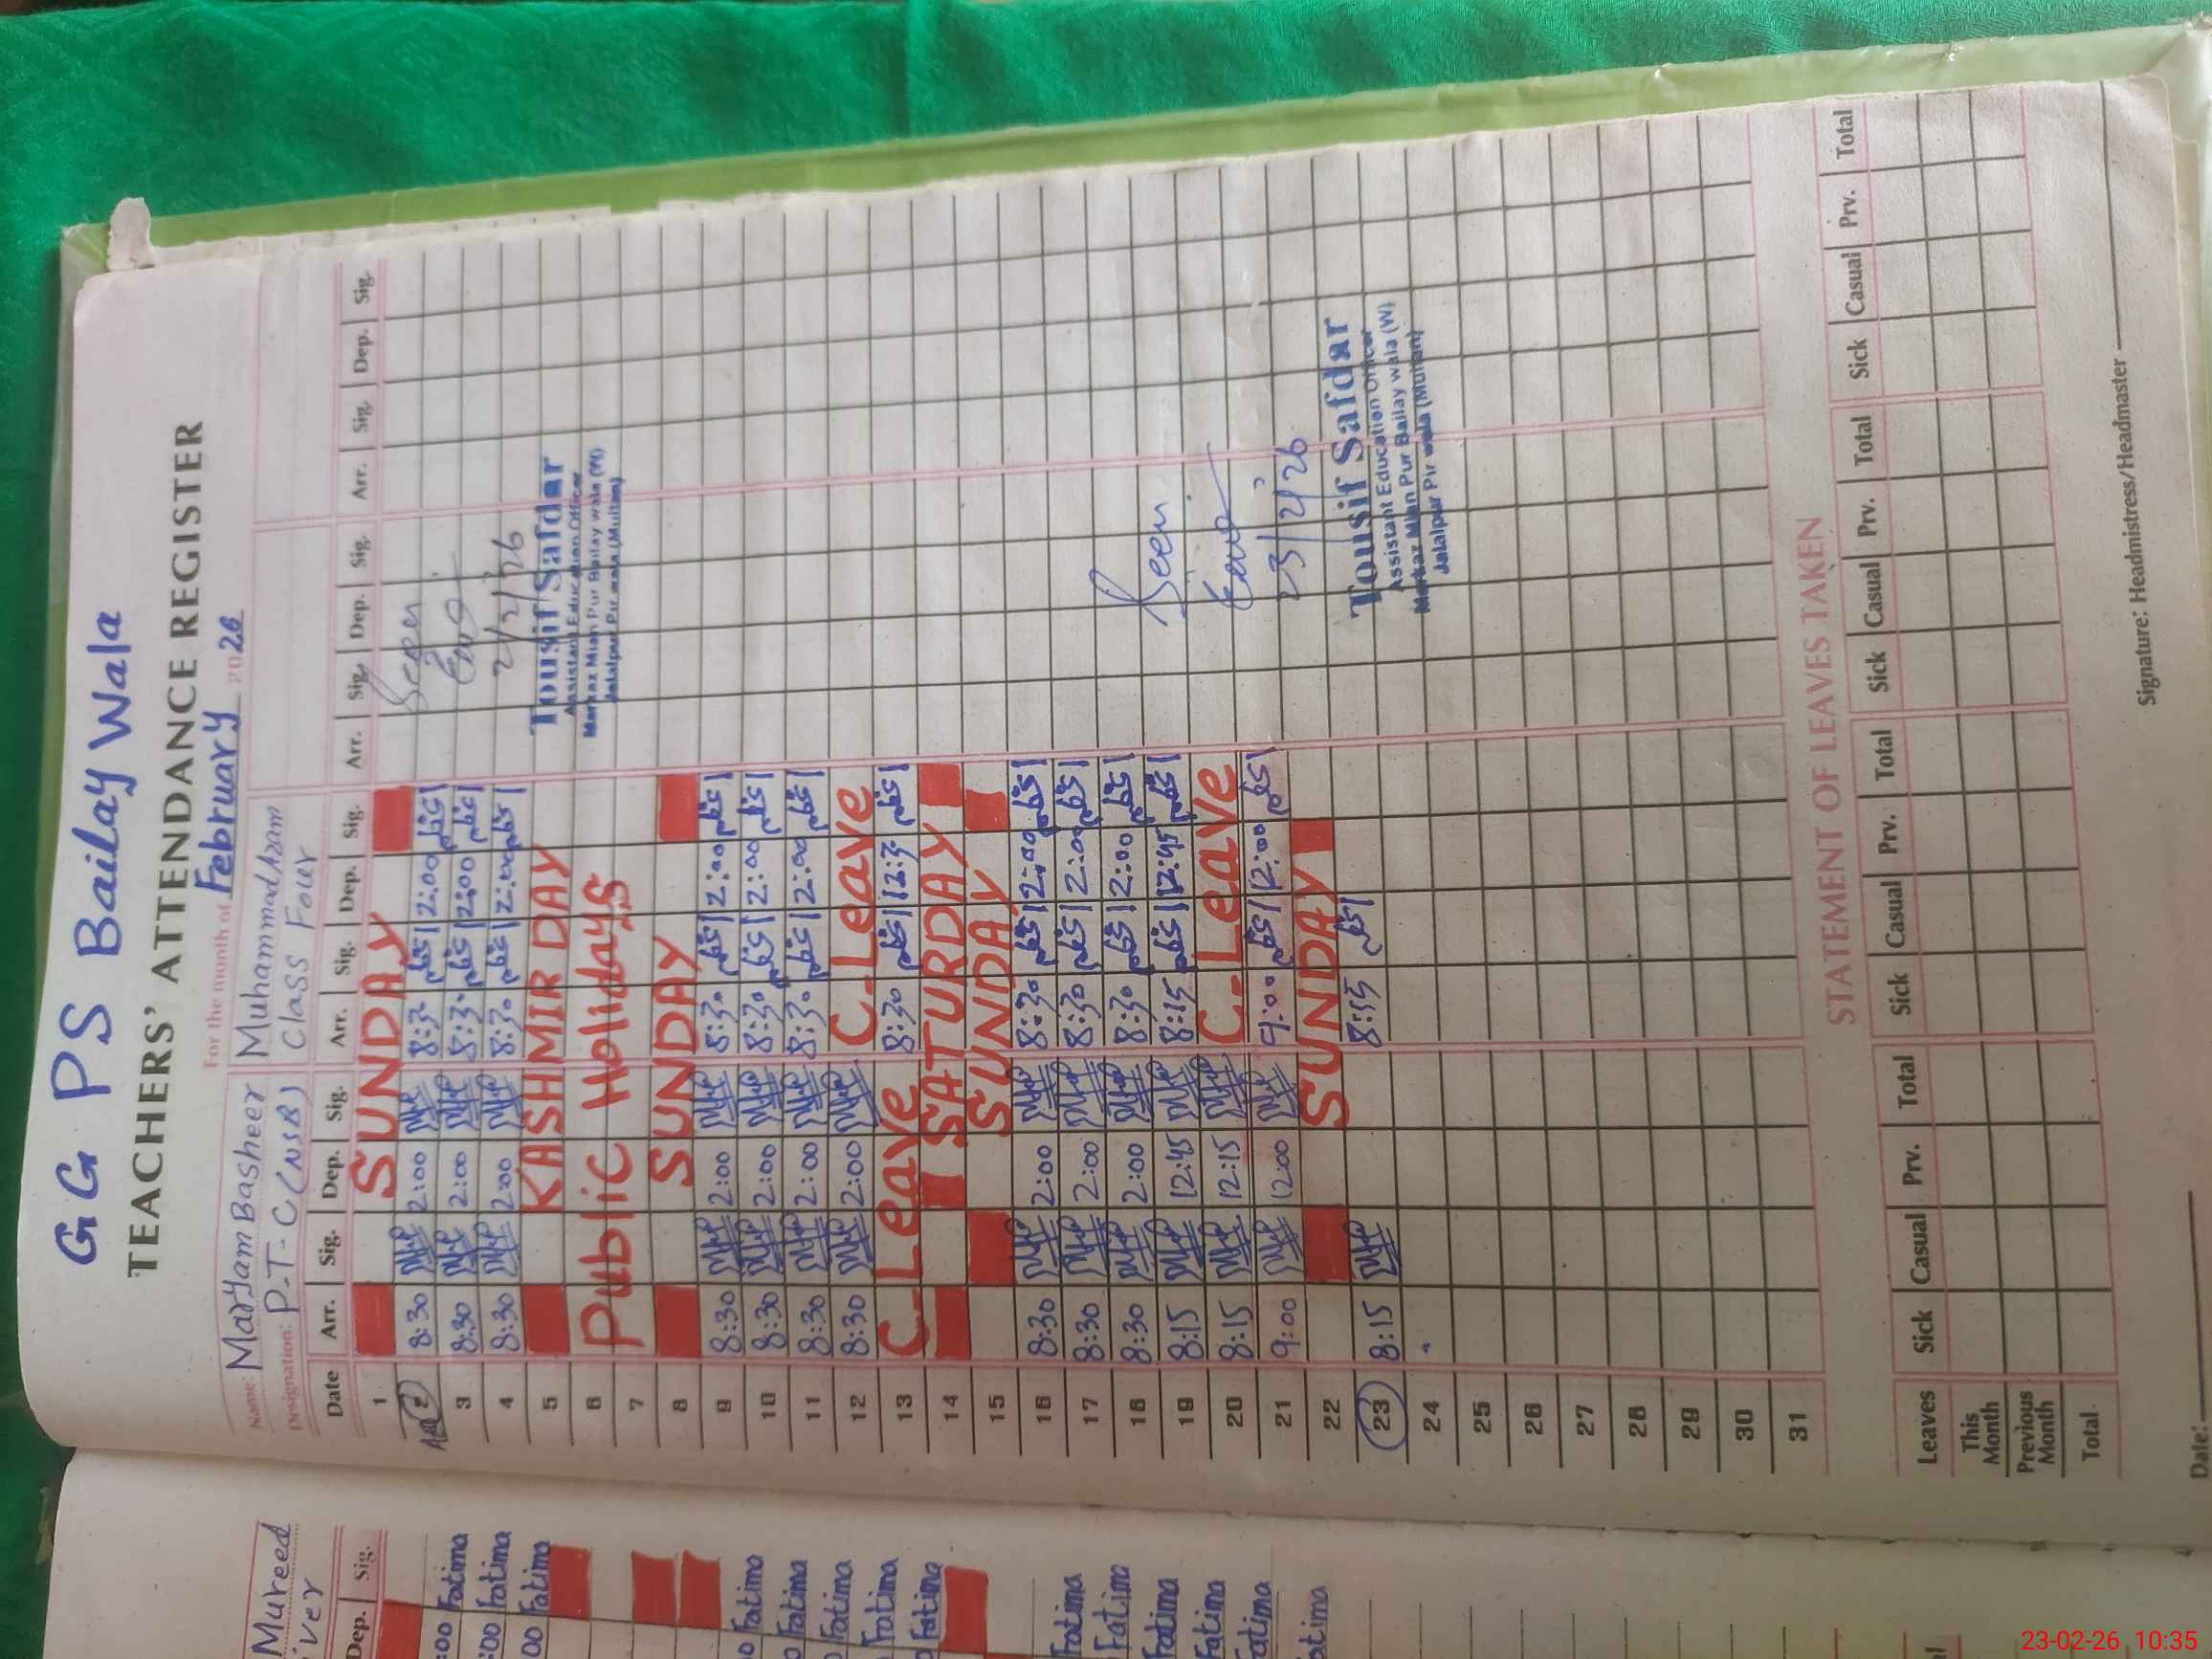 GGPS Bailay Wala
TEACHERS' ATTENDANCE REGISTER
For the month of February 2026
Name: Maryam Basheer Muhammad Azam
Designation: P-T-C (NSB) Class Four
Date Arr. Sig. Dep. Sig. Arr. Sig. Dep. Sig. Arr. Sig. Dep. Sig. Arr. Sig. Dep. Sig.
1 SUNDAY
2 8:30 2:00 8:30 2:00 Seen
3 8:30 2:00 8:30 2:00
4 8:30 2:00 8:30 2:00 2/2/26
5 KASHMIR DAY
Tousif Safdar
Assistant Education Officer
Markaz Mian Pur Bailay wala (W)
Jalalpur Pir wala (Multan)
6 Public Holidays
7
8 SUNDAY
9 8:30 2:00 8:30 2:00
10 8:30 2:00 8:30 2:00
11 8:30 2:00 8:30 2:00
12 8:30 2:00 C-Leave
13 C-Leave 8:30 12:3
14 SATURDAY
15 SUNDAY
16 8:30 2:00 8:30 2:00
17 8:30 2:00 8:30 2:00
18 8:30 2:00 8:30 2:00 Seen
19 8:15 12:45 8:15 12:45
20 8:15 12:15 C-Leave
21 9:00 12:00 9:00 12:00 23/2/26
22 SUNDAY
Tousif Safdar
Assistant Education Officer
Markaz Mian Pur Bailay wala (W)
Jalalpur Pir wala (Multan)
23 8:15 8:15
24
25
26
27
28
29
30
31
STATEMENT OF LEAVES TAKEN
Leaves Sick Casual Prv. Total Sick Casual Prv. Total Sick Casual Prv. Total Sick Casual Prv. Total
This Month
Previous Month
Total
Date: Signature: Headmistress/Headmaster
Mureed
iver
Dep. Sig.
:00 Fatima
:00 Fatima
00 Fatima
0 Fatima
0 Fatima
Fatima
Fatima
Fatima
Fatima
Fatima
Fatima
Fatima
atima
atima
23-02-26 10:35